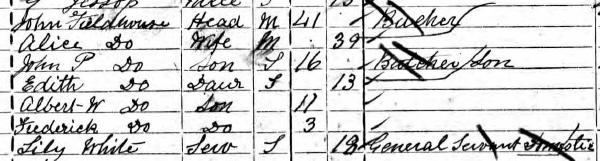 John Fieldhouse Head M 41 Butcher
Alice Do Wife M 39
John P Do Son S 16 Butcher Son
Edith Do Daur S 13
Albert W Do Son 11
Frederick Do Do 3
Lily White Serv S 18 General Servant Domestic